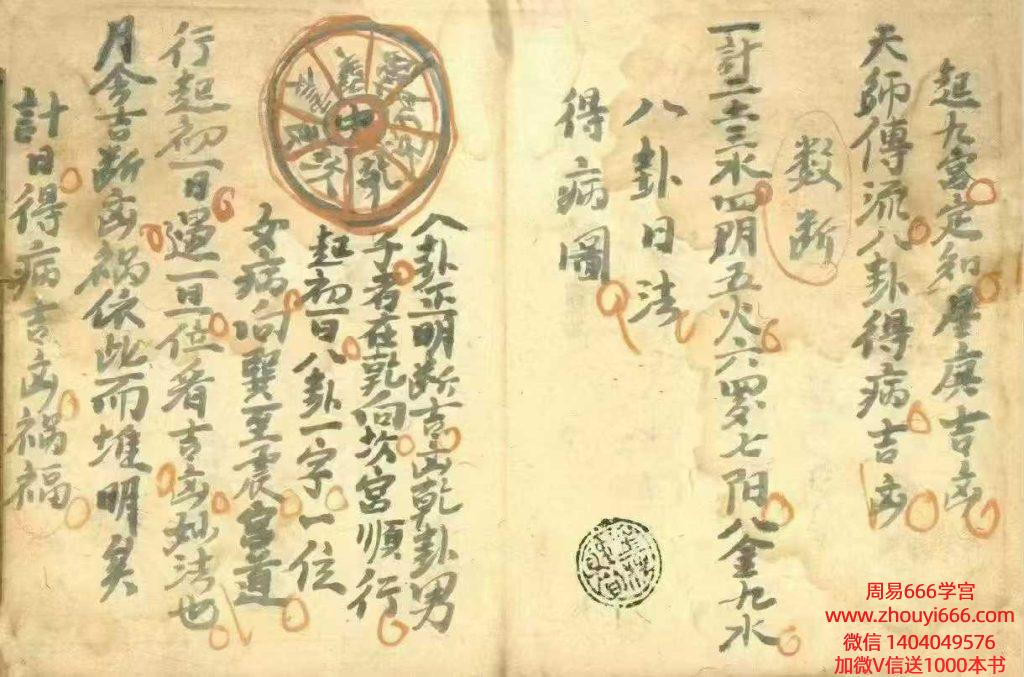 起九宮定知屋庚吉凶
天師傳流八卦得病吉凶
数断
一計二土三水四阴五火六罗七阳八金九水
八卦日法
得病圖
中
乾
八卦正明断吉凶乾卦男
子者在乾向坎宮順行
起初一日八卦一字一位
女病向巽至震宮道
行起初一日過一旦位看吉凶妙法也
月令吉断凶祸依此而堆明矣
計日得病吉凶祸福
周易666学宫
www.zhouyi666.com
微信 1404049576
加微V信送1000本书